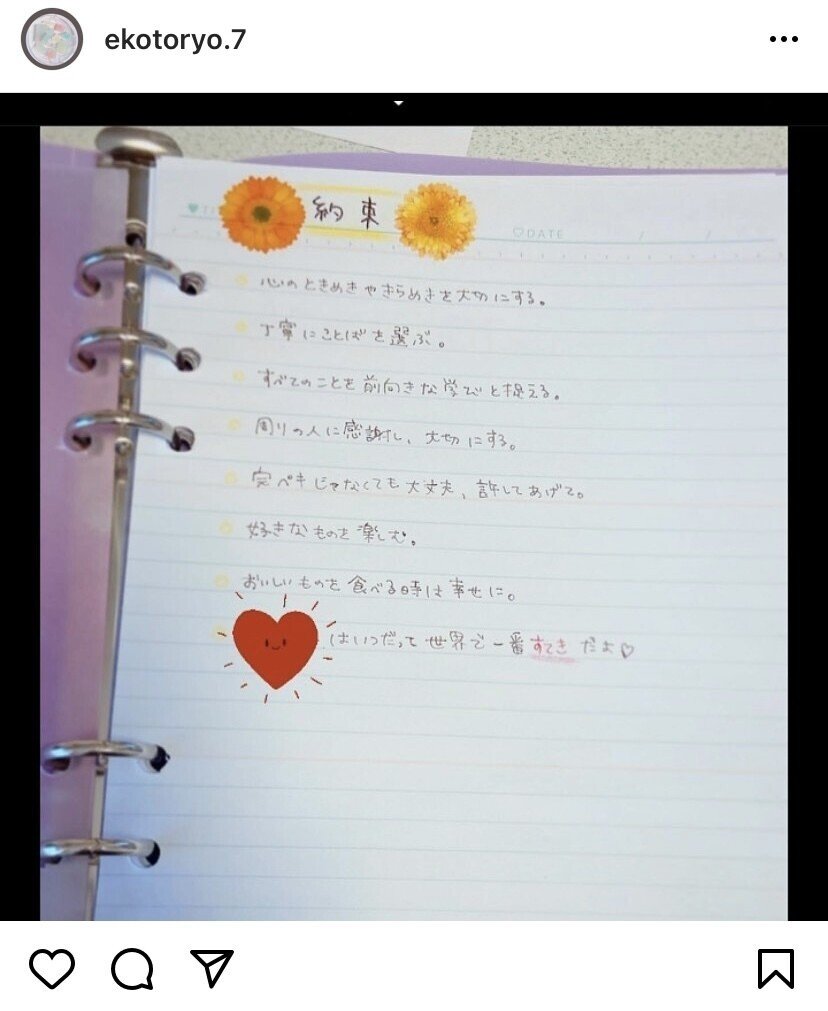 ekotoryo.7
約束
DATE / /
心のときめきやきらめきを大切にする。
丁寧にことばを選ぶ。
すべてのことを前向きな学びと捉える。
周りの人に感謝し、大切にする。
完ペキじゃなくても大丈夫、許してあげて。
好きなものを楽しむ。
おいしいものを食べる時は幸せに。
はいつだって世界で一番すてきだよ♡